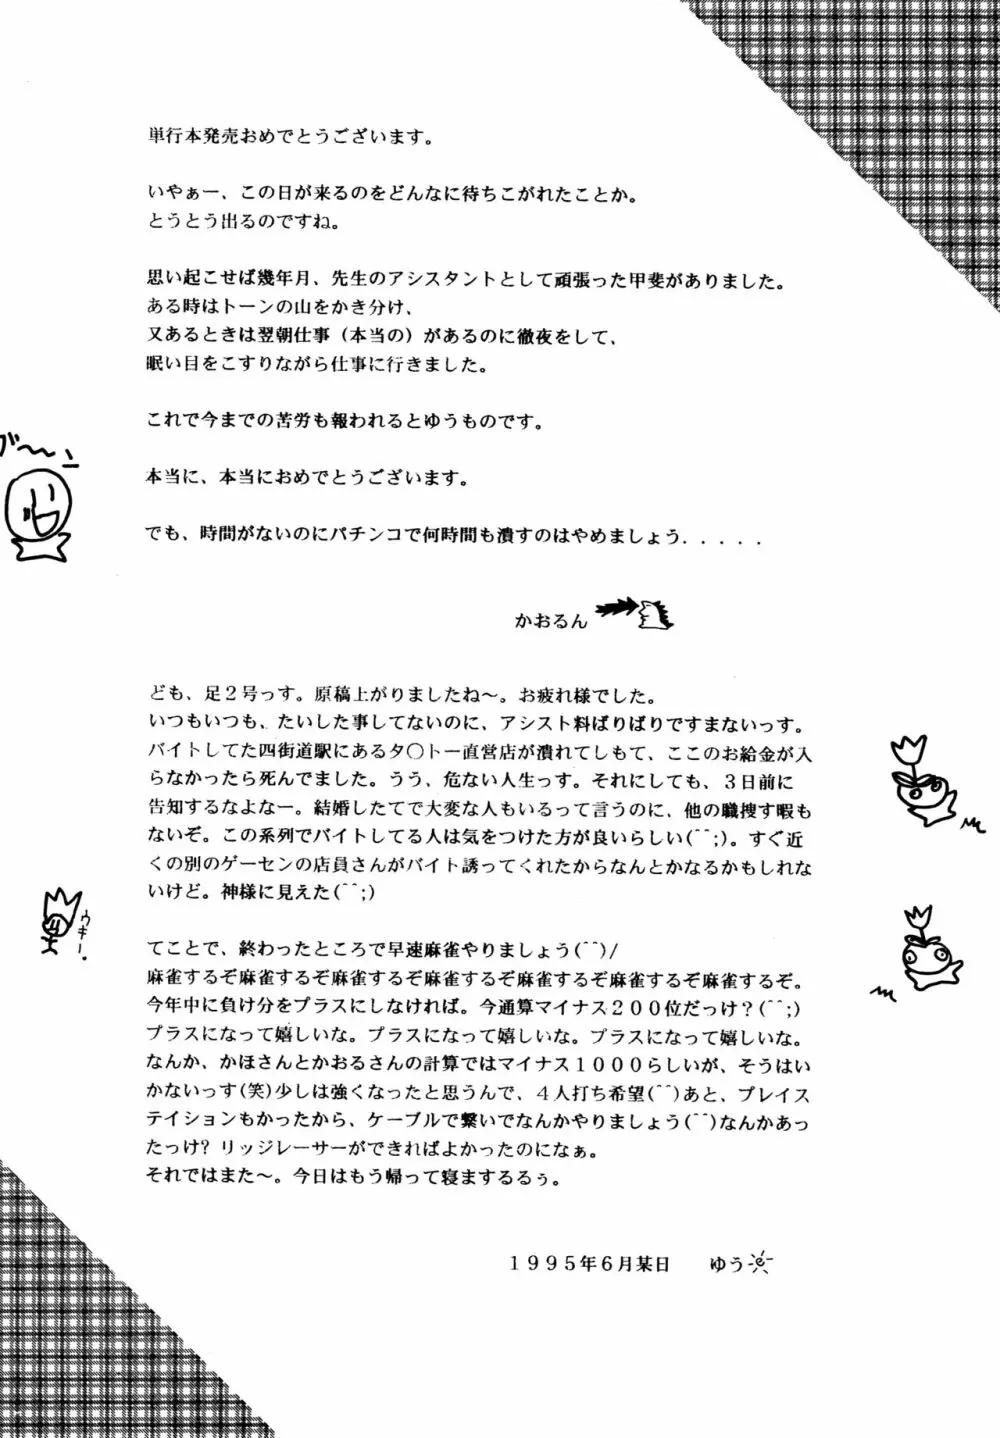 単行本発売おめでとうございます。
いやぁー、この日が来るのをどんなに待ちこがれたことか。
とうとう出るのですね。
思い起こせば幾年月、先生のアシスタントとして頑張った甲斐がありました。
ある時はトーンの山をかき分け、
又あるときは翌朝仕事（本当の）があるのに徹夜をして、
眠い目をこすりながら仕事に行きました。
これで今までの苦労も報われるとゆうものです。
本当に、本当におめでとうございます。
でも、時間がないのにパチンコで何時間も潰すのはやめましょう．．．．．
かおるん
ども、足２号っす。原稿上がりましたね～。お疲れ様でした。
いつもいつも、たいした事してないのに、アシスト料ばりばりですまないっす。
バイトしてた四街道駅にあるタ○トー直営店が潰れてしもて、ここのお給金が入
らなかったら死んでました。うう、危ない人生っす。それにしても、３日前に
告知するなよなー。結婚したてで大変な人もいるって言うのに、他の職捜す暇も
ないぞ。この系列でバイトしてる人は気をつけた方が良いらしい(^^;)。すぐ近
くの別のゲーセンの店員さんがバイト誘ってくれたからなんとかなるかもしれな
いけど。神様に見えた(^^;)
ウキー。
てことで、終わったところで早速麻雀やりましょう(^^)/
麻雀するぞ麻雀するぞ麻雀するぞ麻雀するぞ麻雀するぞ麻雀するぞ麻雀するぞ。
今年中に負け分をプラスにしなければ。今通算マイナス２００位だっけ？(^^;)
プラスになって嬉しいな。プラスになって嬉しいな。プラスになって嬉しいな。
なんか、かほさんとかおるさんの計算ではマイナス１０００らしいが、そうはい
かないっす(笑)少しは強くなったと思うんで、４人打ち希望(^^)あと、プレイス
テイションもかったから、ケーブルで繋いでなんかやりましょう(^^)なんかあっ
たっけ？リッジレーサーができればよかったのになぁ。
それではまた～。今日はもう帰って寝まするるぅ。
１９９５年６月某日　ゆう